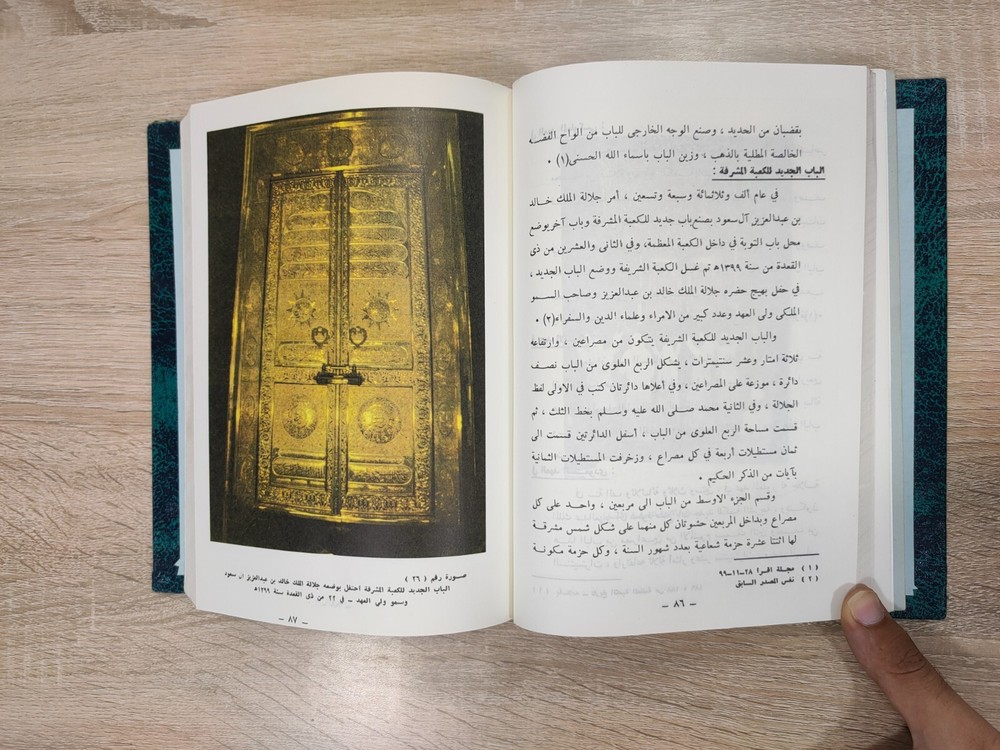 بقضبان من الحديد ، وصنع الوجه الخارجى للباب من الواح الفضة
الخالصة المطلية بالذهب ، وزين الباب بأسماء الله الحسنى(١) .
الباب الجديد للكعبة المشرفة :
في عام ألف وثلاثمائة وسبعة وتسعين ، أمر جلالة الملك خالد
بن عبدالعزيز آل سعود بصنع باب جديد للكعبة المشرفة وباب آخر يوضع
محل باب التوبة في داخل الكعبة المعظمة، وفي الثانى والعشرين من ذى
القعدة من سنة ١٣٩٩ه تم غسل الكعبة الشريفة ووضع الباب الجديد ،
في حفل بهيج حضره جلالة الملك خالد بن عبدالعزيز وصاحب السمو
الملكى ولى العهد وعدد كبير من الامراء وعلماء الدين والسفراء(٢) .
والباب الجديد للكعبة الشريفة يتكون من مصراعين ، وارتفاعه
ثلاثة امتار وعشر سنتيمترات ، يشكل الربع العلوى من الباب نصف
دائرة ، موزعة على المصراعين ، وفي أعلاها دائرتان كتب في الاولى لفظ
الجلالة ، وفي الثانية محمد صلى الله عليه وسلم بخط الثلث ، ثم
قسمت مساحة الربع العلوى من الباب ، أسفل الدائرتين قسمت الى
ثمان مستطيلات أربعة في كل مصراع ، وزخرفت المستطيلات الثمانية
بآيات من الذكر الحكيم .
وقسم الجزء الاوسط من الباب الى مربعين ، واحد على كل
مصراع وبداخل المربعين حشوتان كل منهما على شكل شمس مشرقة
لها اثنتا عشرة حزمة شعاعية بعدد شهور السنة ، وكل حزمة مكونة
(١) مجلة اقرا ٢٨–١١–٩٩
(٢) نفس المصدر السابق
– ٨٦ –
صورة رقم ( ٢٦ )
الباب الجديد للكعبة المشرفة احتفل بوضعه جلالة الملك خالد بن عبدالعزيز ال سعود
وسمو ولي العهد – في ٢٢ من ذى القعدة سنة ١٣٩٩ه
– ٨٧ –